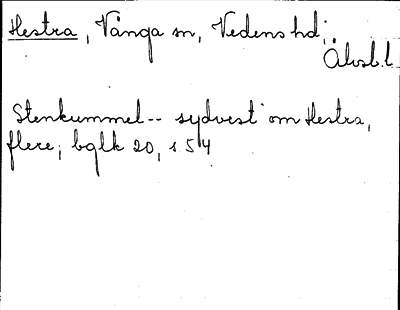 Hestra, Vånga sn, Vedens hd;
Älvsb.l.
Stenkummel-- sydvest om Hestra,
flere; bglk 20, s 54